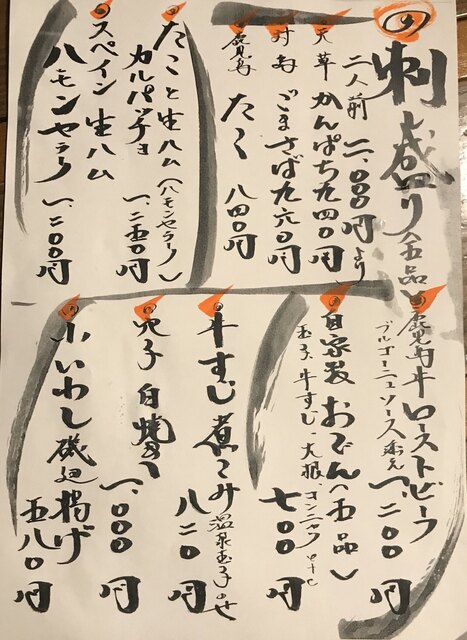 の刺し盛り(五品)
二人前 二、000円より
天草 かんぱち 九四0円
対馬 ごまさば 九六0円
鹿児島 たこ 八四0円
たこと生ハム(ハモンセラーノ)
カルパッチョ 一、二五0円
スペイン生ハム
ハモンセラーノ 一、二00円
鹿児島牛ローストビーフ
ブルゴーニュソース添え 一、二00円
自家製おでん(五品)
玉子、牛すじ、大根、コンニャク
七00円
牛すじ煮こみ 温泉玉子のせ
八二0円
穴子白焼き
一、000円
小いわし磯辺揚げ
五八0円